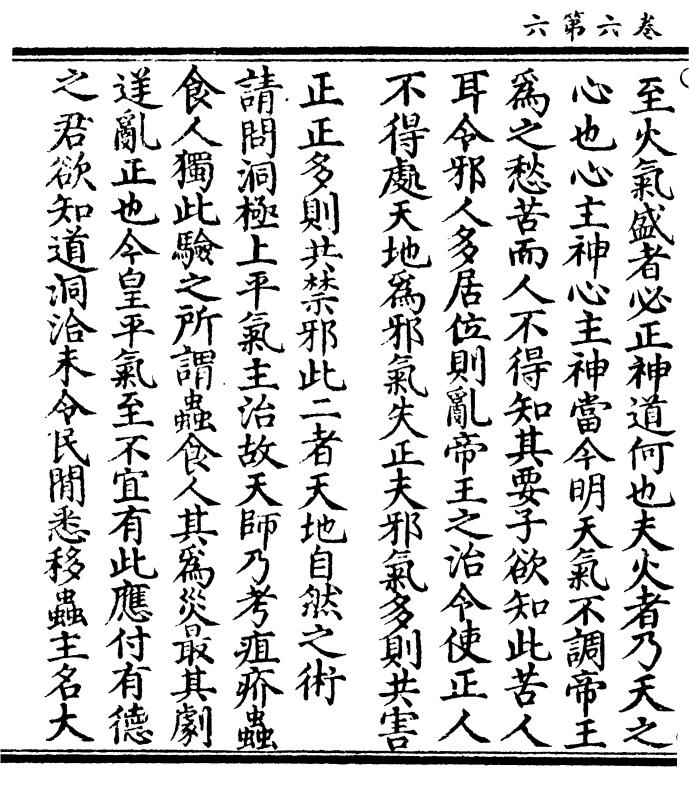 卷六第六
至火氣盛者必正神道何也夫火者乃天之
心也心主神心主神當今明天氣不調帝王
爲之愁苦而人不得知其要子欲知此苦人
耳令邪人多居位則亂帝王之治令使正人
不得處天地爲邪氣失正夫邪氣多則共害
正正多則共禁邪此二者天地自然之術
請問洞極上平氣主治故天師乃考疽疥蟲
食人獨此驗之所謂蟲食人其爲災最其劇
逆亂正也今皇平氣至不宜有此應付有德
之君欲知道洞洽未令民閒悉移蟲主名大